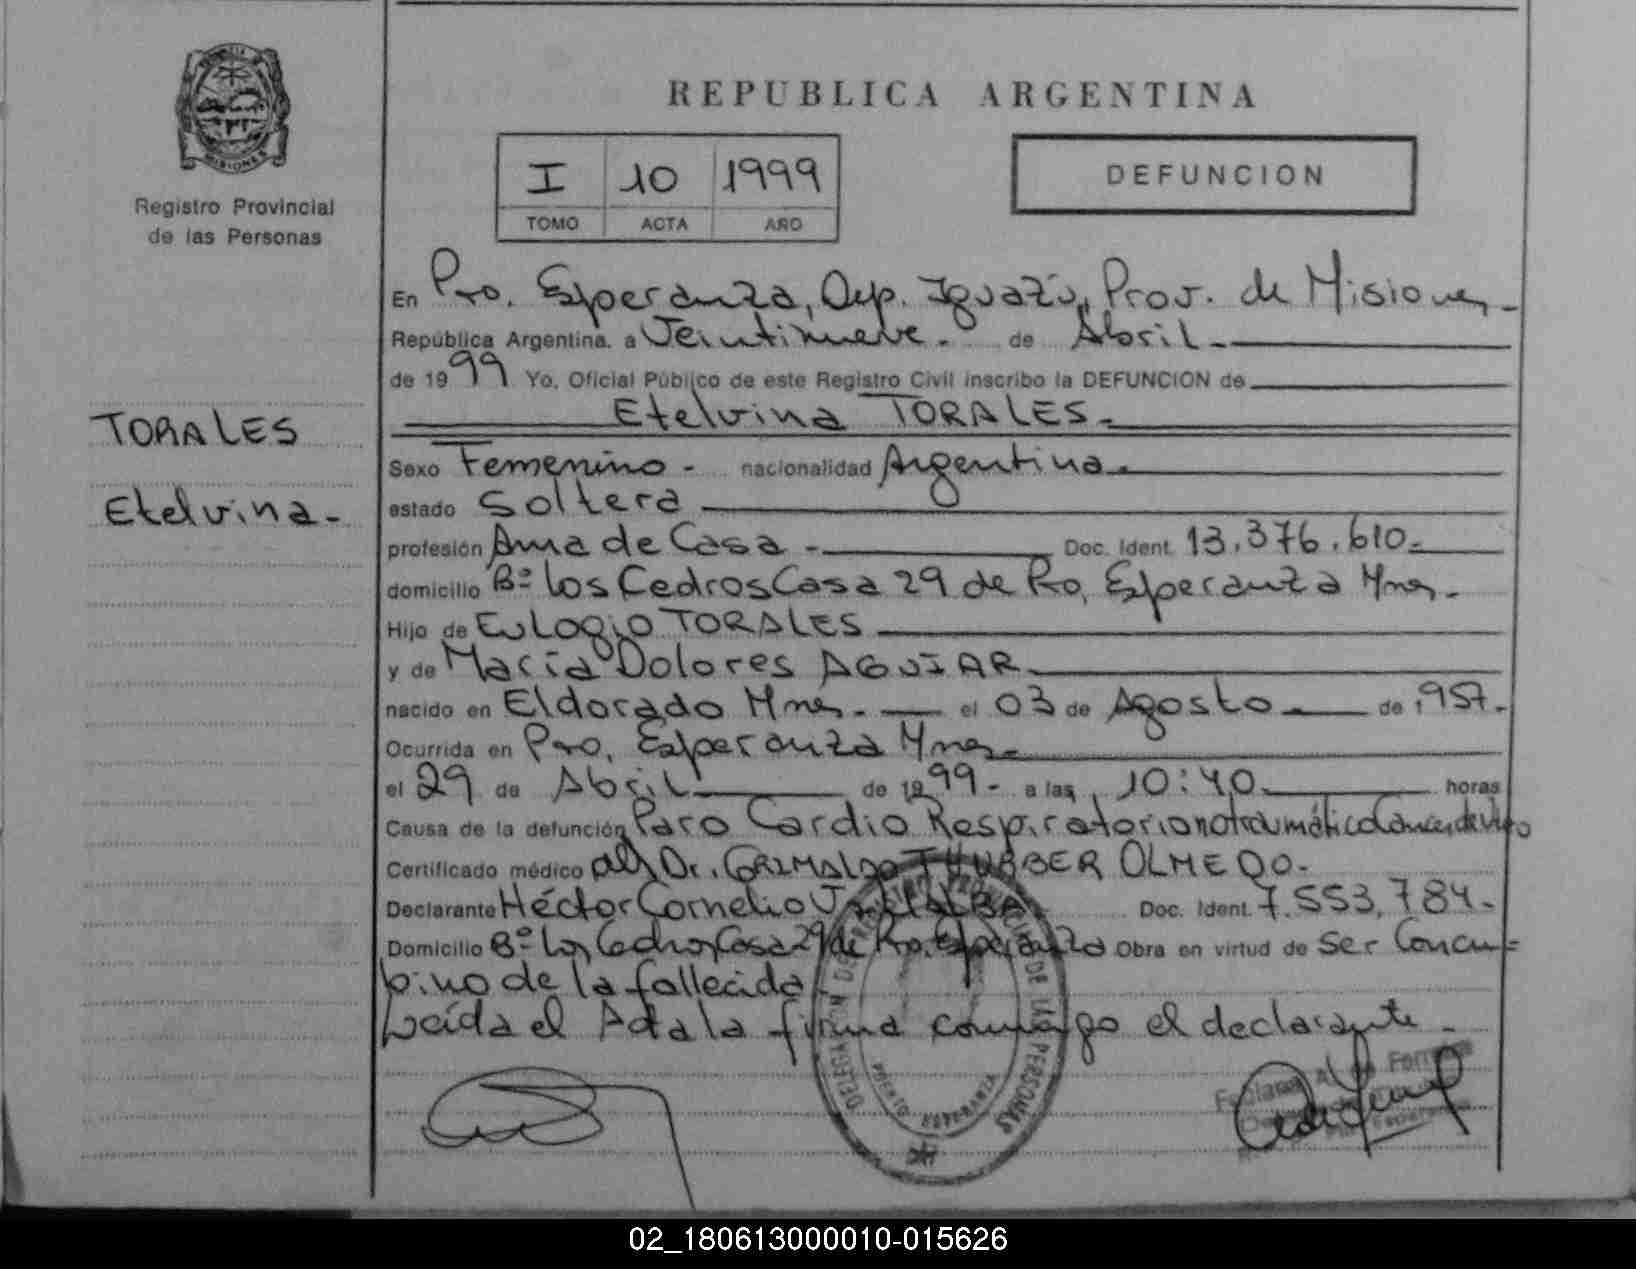 MISIONES
Registro Provincial
de las Personas
TORALES
Etelvina-
REPUBLICA ARGENTINA
I 10 1999
TOMO ACTA AÑO
DEFUNCION
En Pto. Esperanza, Dep. Iguazú, Prov. de Misiones-
República Argentina. a Veintinueve. de Abril-
de 1999 Yo, Oficial Público de este Registro Civil inscribo la DEFUNCION de
Etelvina TORALES-
Sexo Femenino- nacionalidad Argentina.
estado Soltera
profesión Ama de Casa- Doc. Ident. 13.376.610-
domicilio Bº los Cedros Casa 29 de Pto, Esperanza Mnes.
Hijo de Eulogio TORALES
y de María Dolores AGUIAR
nacido en Eldorado Mnes. el 03 de Agosto de 1957.
Ocurrida en Pto, Esperanza Mnes-
el 29 de Abril de 1999- a las 10:40 horas
Causa de la defunción Paro Cardio Respiratorio no traumático Cancer de
Certificado médico Dr. GRIMALDO THURBER OLMEDO-
Declarante Héctor Cornelio Doc. Ident. 7.553.784-
Domicilio Bº Los Cedros Casa 29 de Pto. Esperanza Obra en virtud de Ser Concu=
bino de la fallecida
Leída el Acta la firma conmigo el declarante-
DELEGACION DE LAS PERSONAS
PUERTO ESPERANZA
02_180613000010-015626